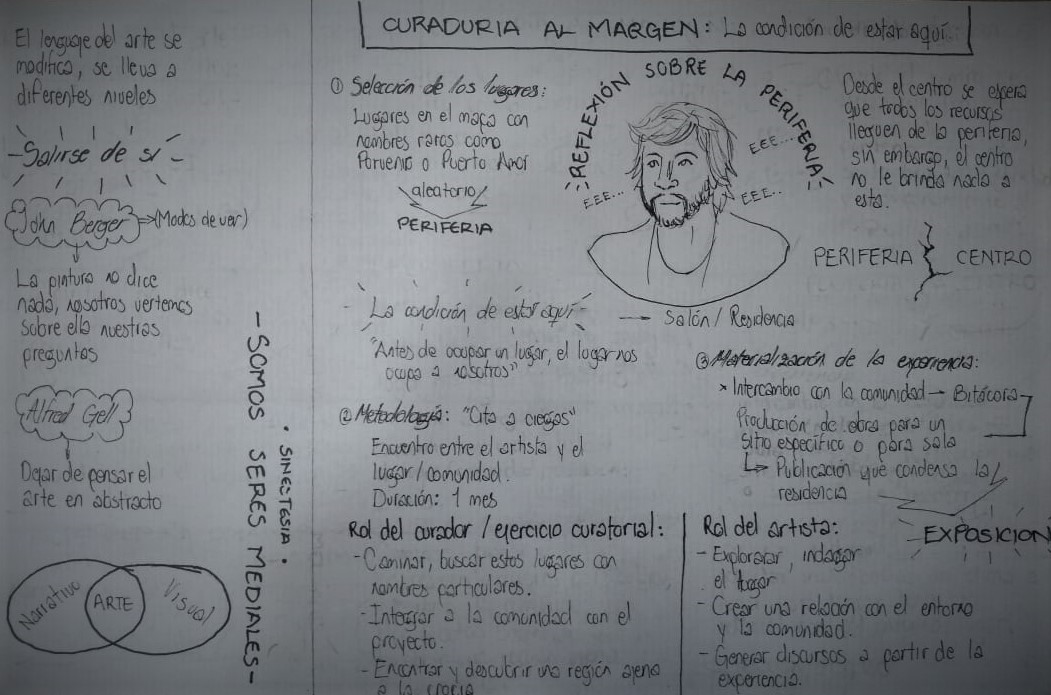 El lenguaje del arte se
modifica, se lleva a
diferentes niveles
- Salirse de sí -
John Berger → (Modos de ver)
La pintura no dice
nada, nosotros vertemos
sobre ella nuestras
preguntas
Alfred Gell
Dejar de pensar el
arte en abstracto
Narrativo
ARTE
Visual
- SOMOS SERES MEDIALES -
• SINECTESIA •
CURADURIA AL MARGEN: La condición de estar aquí.
① Selección de los lugares:
Lugares en el mapa con
nombres raros como
Porvenir o Puerto Amor
aleatorio
PERIFERIA
REFLEXIÓN SOBRE LA PERIFERIA
EEE...
EEE...
EEE..
Desde el centro se espera
que todos los recursos
lleguen de la periferia,
sin embargo, el centro
no le brinda nada a
esta.
PERIFERIA
CENTRO
- La condición de estar aquí -
— Salón / Residencia
"Antes de ocupar un lugar, el lugar nos
ocupa a nosotros"
② Metodología: "Cita a ciegas"
Encuentro entre el artista y el
lugar / comunidad.
Duración: 1 mes
③ Materialización de la experiencia:
× Intercambio con la comunidad → Bitácora
Producción de obra para un
sitio específico o para sala
↳ Publicación que condensa la
residencia
- EXPOSICION
Rol del curador / ejercicio curatorial:
- Caminar, buscar estos lugares con
nombres particulares.
- Integrar a la comunidad con el
proyecto.
- Encontrar y descubrir una región ajena
a la propia
Rol del artista:
- Explorarar, indagar
el lugar
- Crear una relación con el entorno
y la comunidad.
- Generar discursos a partir de la
experiencia.